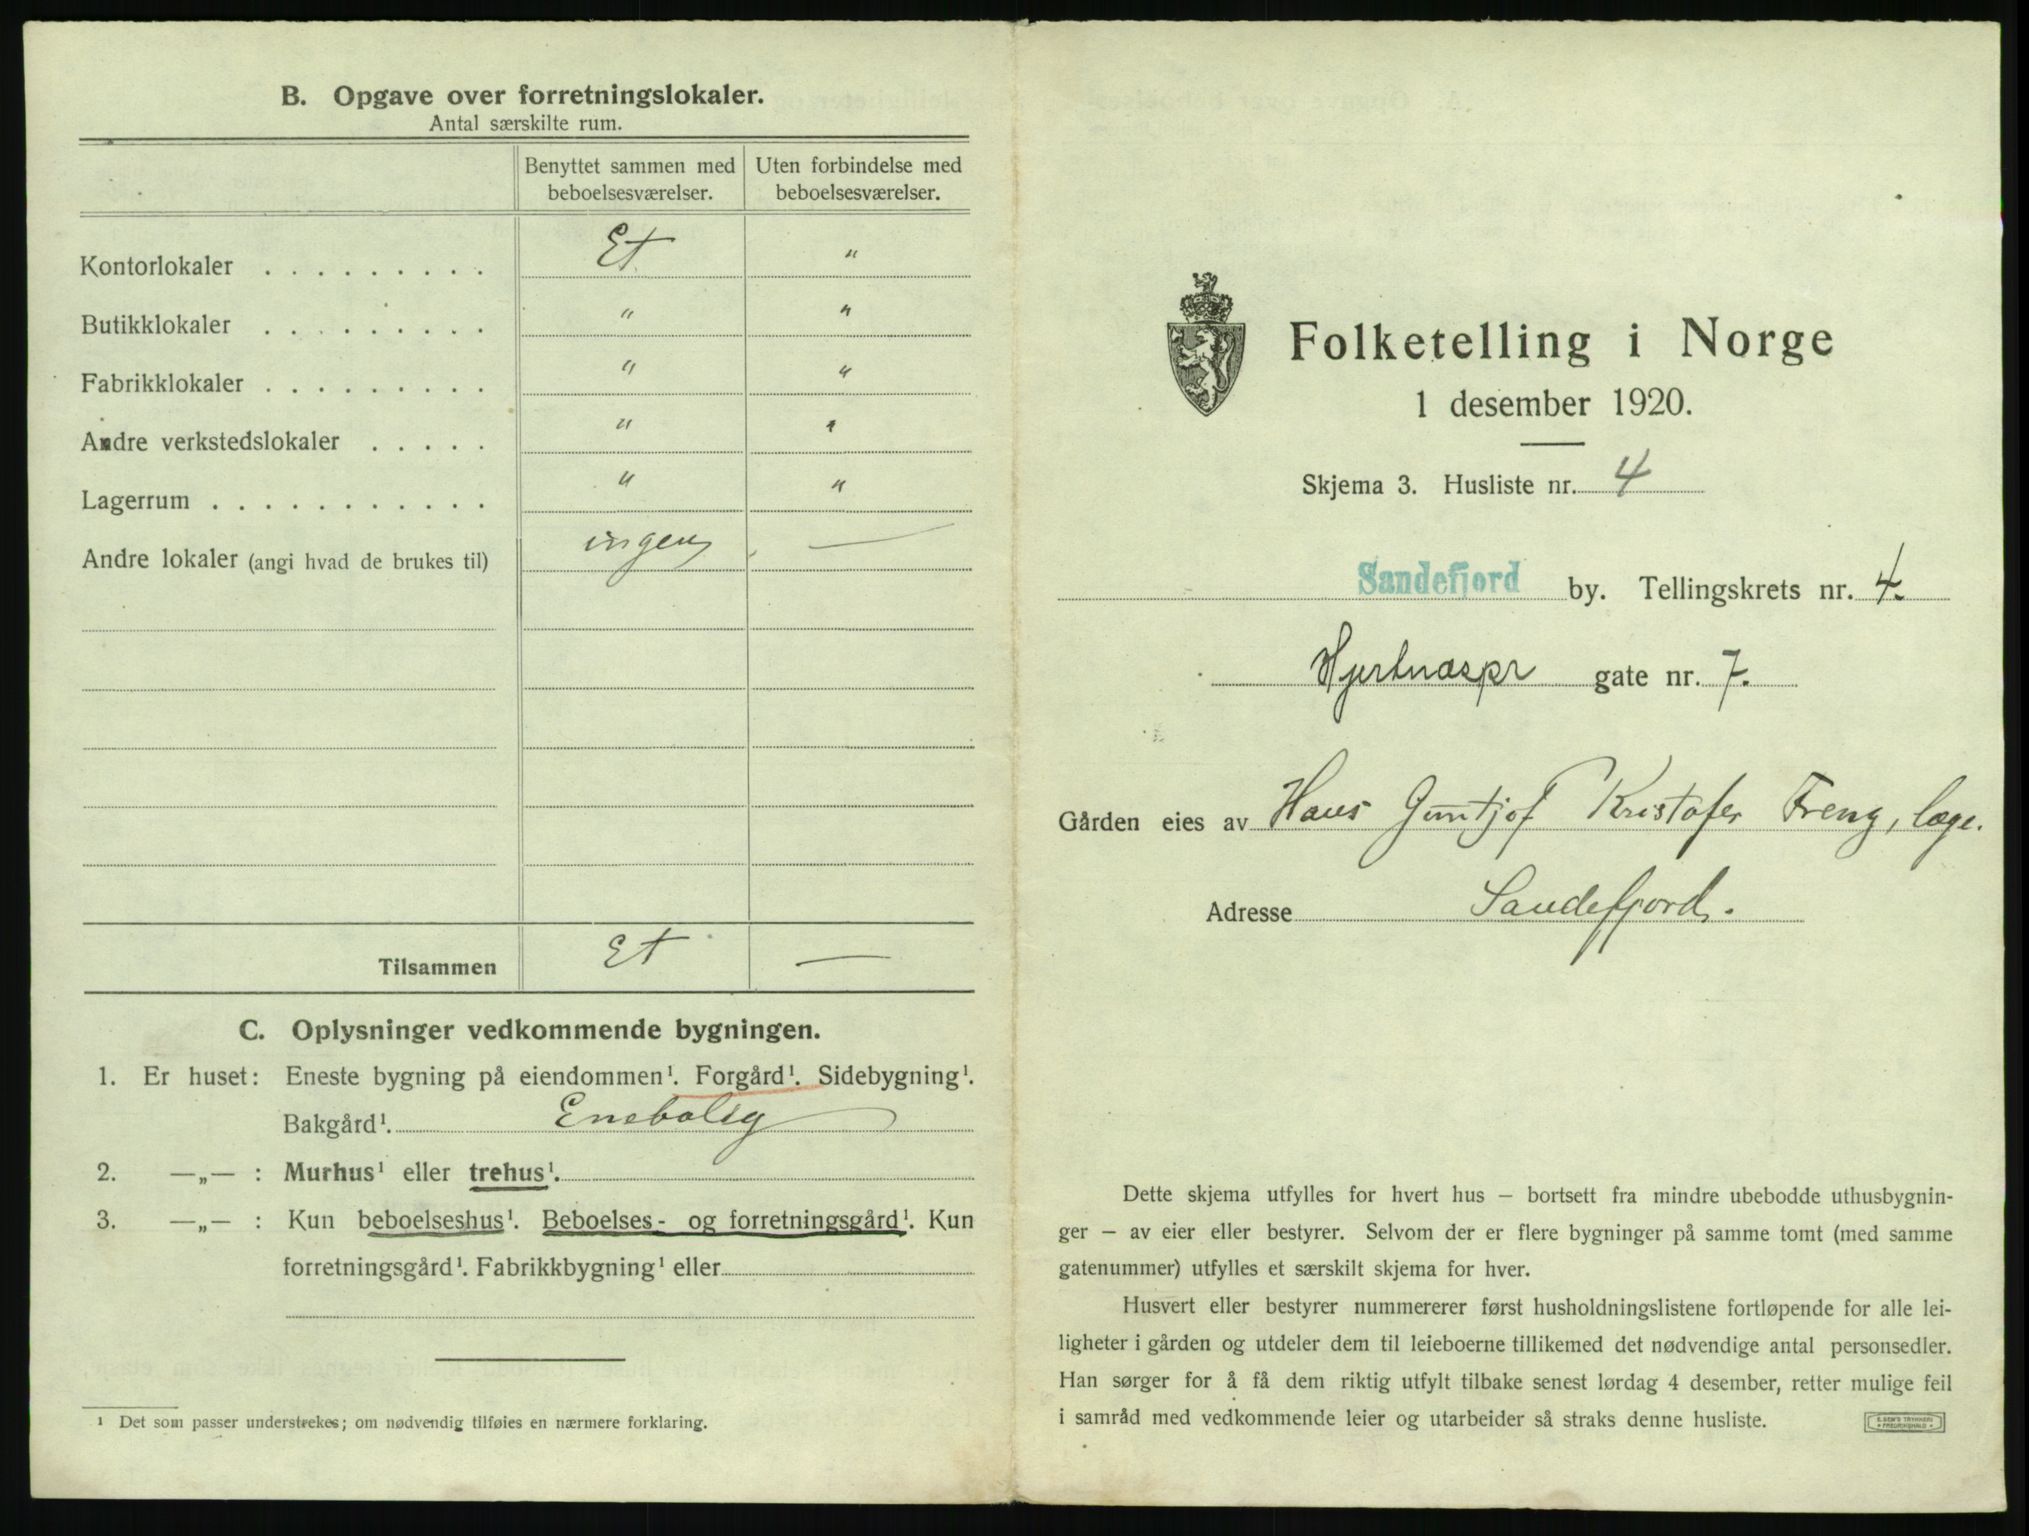 B. Opgave over forretningslokaler.
Antal særskilte rum.
Benyttet sammen med beboelsesværelser.
Uten forbindelse med beboelsesværelser.
Kontorlokaler . . . . . . . . . Et „
Butikklokaler . . . . . . . . . „ „
Fabrikklokaler . . . . . . . . . „ „
Andre verkstedslokaler . . . . . „ „
Lagerrum . . . . . . . . . . . „ „
Andre lokaler (angi hvad de brukes til) ingen —
Tilsammen Et —
C. Oplysninger vedkommende bygningen.
1. Er huset: Eneste bygning på eiendommen¹. Forgård¹. Sidebygning¹.
Bakgård¹. Enebolig
2. —„— : Murhus¹ eller trehus¹.
3. —„— : Kun beboelseshus¹. Beboelses- og forretningsgård¹. Kun
forretningsgård¹. Fabrikkbygning¹ eller
¹ Det som passer understrekes; om nødvendig tilføies en nærmere forklaring.
Folketelling i Norge
1 desember 1920.
Skjema 3. Husliste nr. 4
Sandefjord by. Tellingskrets nr. 4.
Hjertnæspr gate nr. 7.
Gården eies av Hans Kristofer Freng, læge.
Adresse Sandefjord.
Dette skjema utfylles for hvert hus — bortsett fra mindre ubebodde uthusbygnin-
ger — av eier eller bestyrer. Selvom der er flere bygninger på samme tomt (med samme
gatenummer) utfylles et særskilt skjema for hver.
Husvert eller bestyrer nummererer først husholdningslistene fortløpende for alle lei-
ligheter i gården og utdeler dem til leieboerne tillikemed det nødvendige antal personsedler.
Han sørger for å få dem riktig utfylt tilbake senest lørdag 4 desember, retter mulige feil
i samråd med vedkommende leier og utarbeider så straks denne husliste.